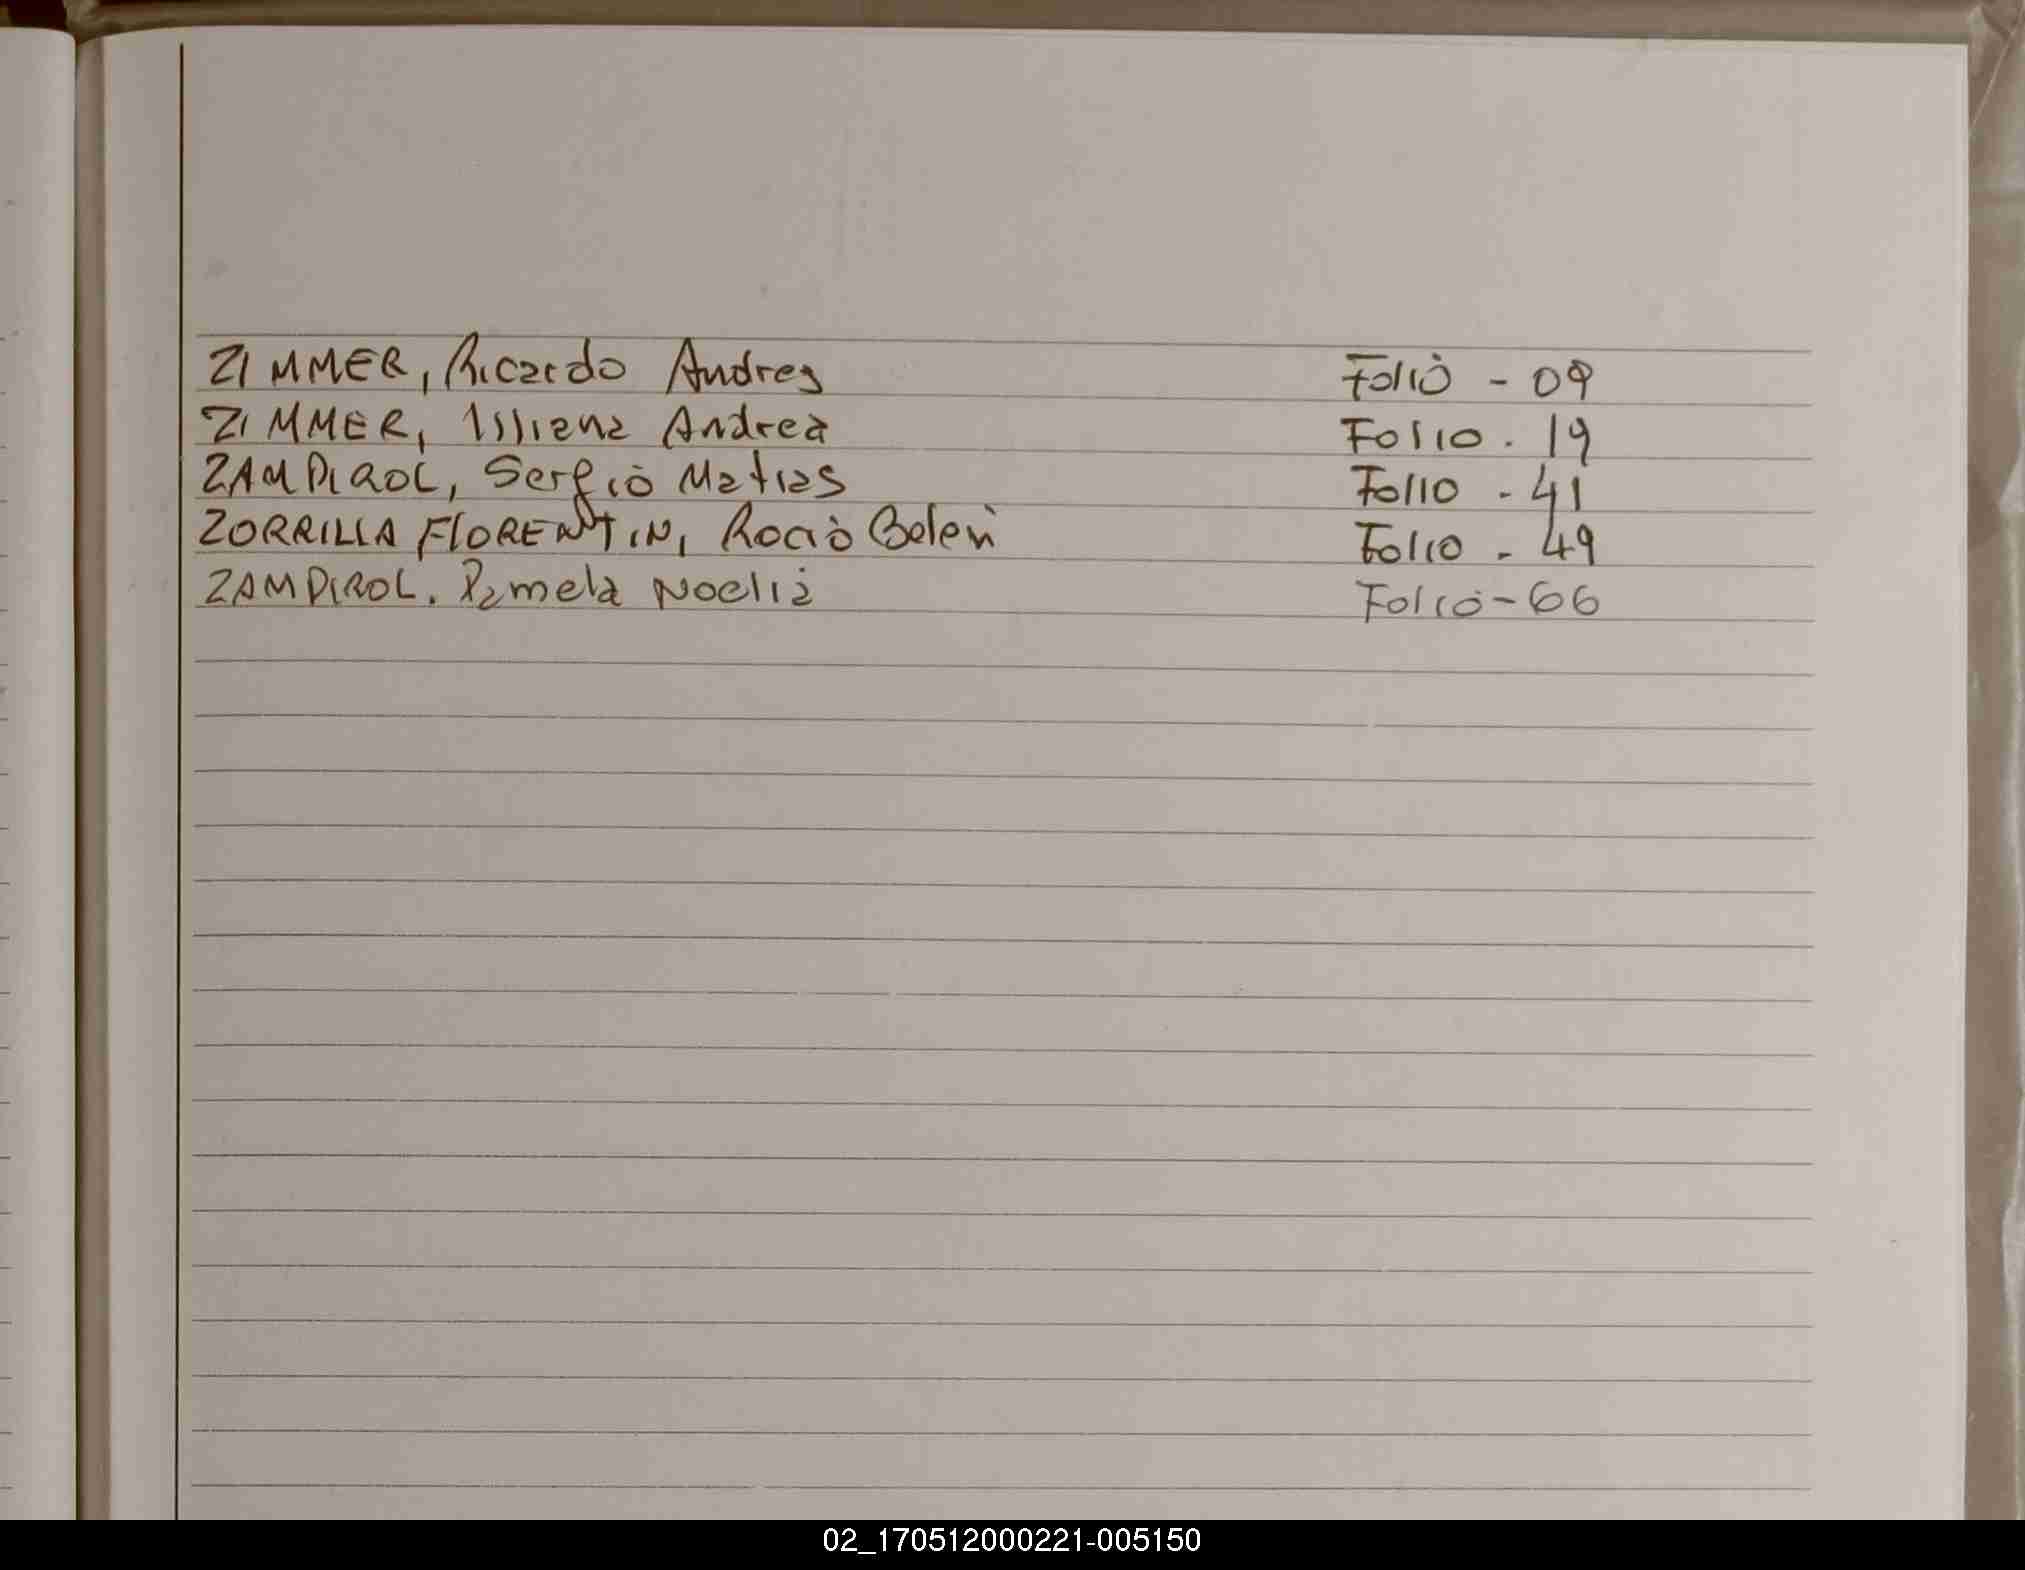 ZIMMER, Ricardo Andres Folio - 09
ZIMMER, Andrea Folio - 19
ZAMPIROL, Sergio Matias Folio - 41
ZORRILLA FLORENTIN, Rocio Belen Folio - 49
ZAMPIROL. Pamela Noelia Folio - 66
02_170512000221-005150